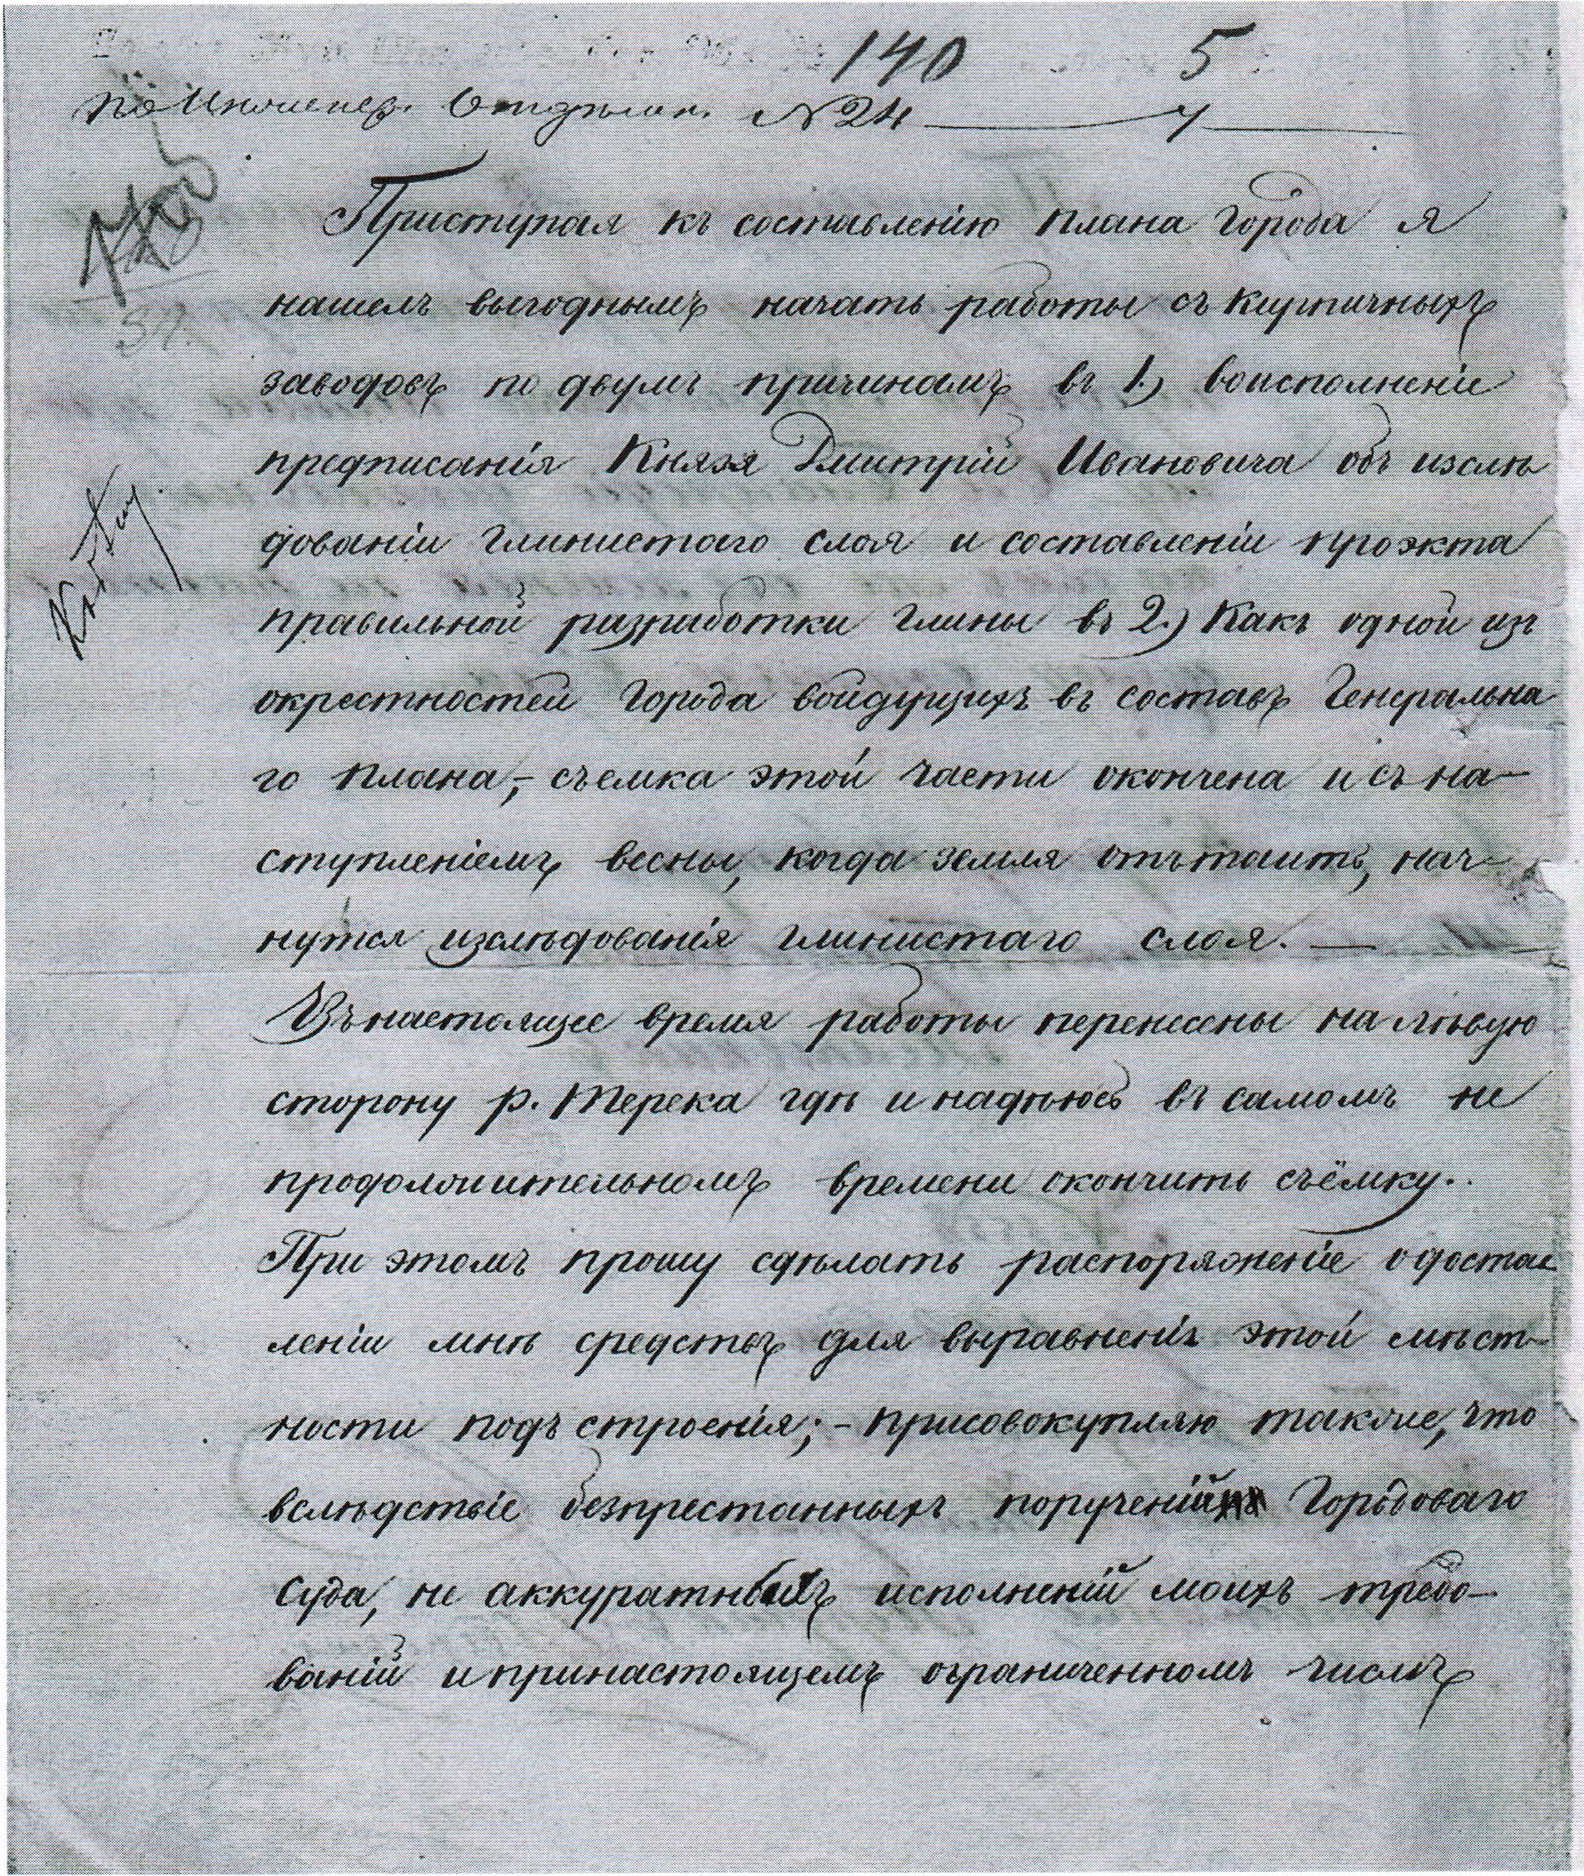 140 5
По Инженер. Отделен. № 24
Приступая къ составленію плана города я
нашелъ выгоднымъ начать работы съ кирпичныхъ
заводовъ по двумъ причинамъ въ 1.) воисполненіе
предписанія Князя Дмитрій Ивановича объ изслѣ
дованіи глинистаго слоя и составленіи проэкта
правильной разработки глины въ 2.) Какъ одной изъ
окрестностей города войдущихъ въ составъ Генеральна
го плана,- съемка этой части окончена и съ на-
ступленіемъ весны, когда земля отътаитъ, нач-
нутся изслѣдованія глинистаго слоя. —
Въ настоящее время работы перенесены на лѣвую
сторону р. Терека гдѣ и надѣюсь въ самомъ не
продолжительномъ времени окончить съёмку..
При этомъ прошу сдѣлать распоряженіе о достав
леніи мнѣ средствъ для выравненія этой мѣст-
ности подъ строенія; - присовокупляю также, что
вслѣдствіе безпрестанныхъ порученій Городоваго
Суда, не аккуратныхъ исполненій моихъ требо-
ваній и принастоящемъ ограниченномъ числѣ